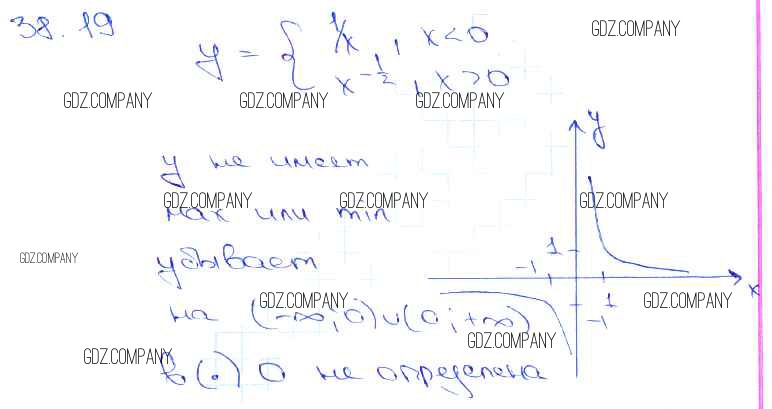 38.19
y = { 1/x, x<0
x^{-1/2}, x>0
GDZ.COMPANY
GDZ.COMPANY GDZ.COMPANY GDZ.COMPANY
y не имеет
GDZ.COMPANY GDZ.COMPANY GDZ.COMPANY
max или min
GDZ.COMPANY
убывает
GDZ.COMPANY GDZ.COMPANY
на (-∞;0)∪(0;+∞)
GDZ.COMPANY
GDZ.COMPANY
в (.) 0 не определена
y
1
-1
x
1
-1